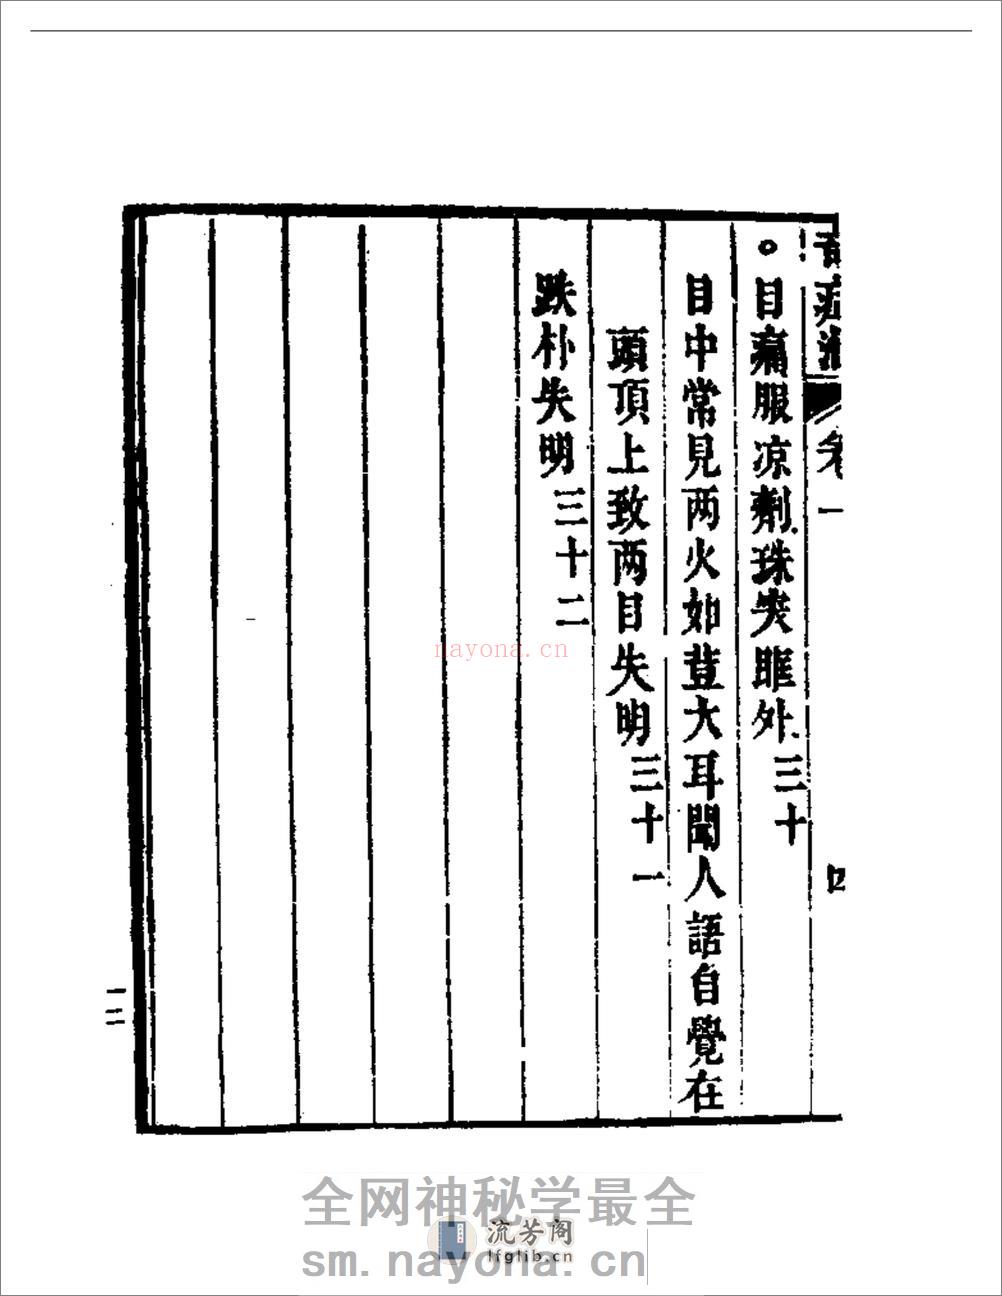 卷一
四
○目痛服凉劑珠突眶外三十
目中常見两火如荳大耳聞人語自覺在
頭頂上致两目失明三十一
跌朴失明三十二
一二
nayona.cn
全网神秘学最全
流芳阁
lfglib.cn
sm.nayona.cn